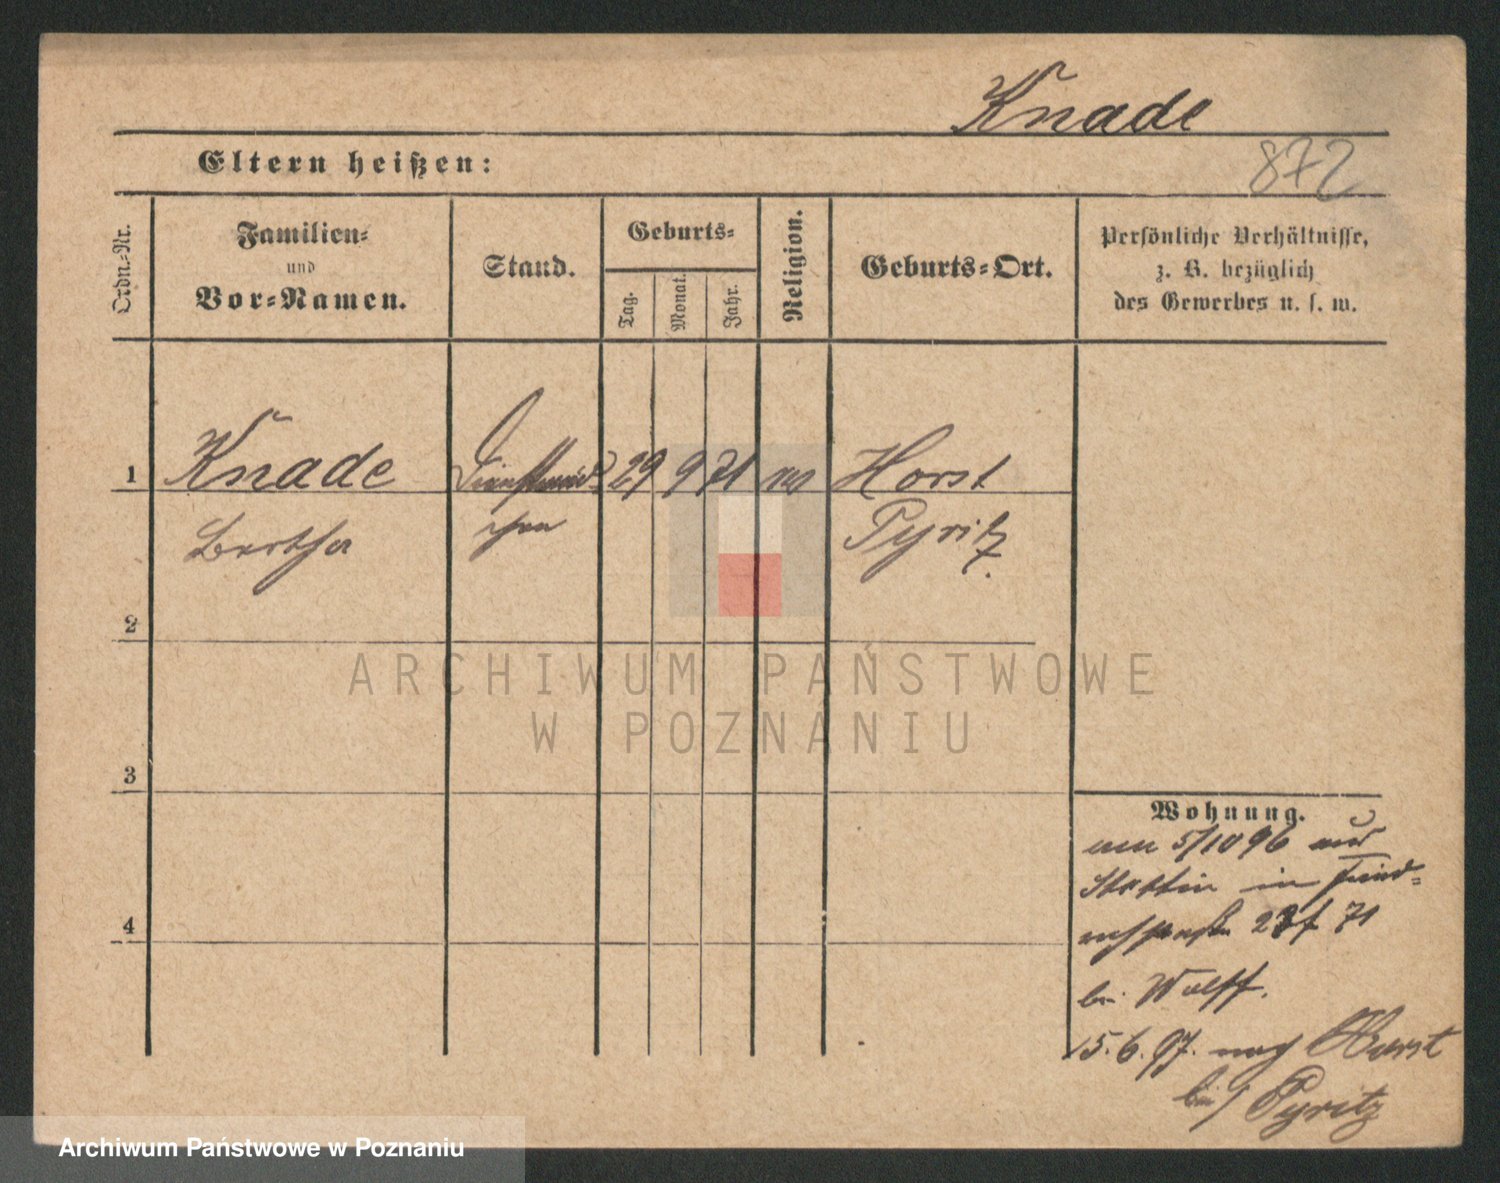 Knade
Eltern heißen:
872
Ordn.-Nr.
Familien-
und
Vor-Namen.
Stand.
Geburts-
Tag.
Monat.
Jahr.
Religion.
Geburts-Ort.
Persönliche Verhältnisse,
z. B. bezüglich
des Gewerbes u. s. w.
1
Knade
Dienstmäd-
29
9
71
Horst
Bertha
chen
Pyritz.
2
3
4
Wohnung.
am 5/10 96 aus
Stettin in Fried-
richstraße 71
bei Wolff.
15.6.97. nach Horst
bei Pyritz
ARCHIWUM PAŃSTWOWE
W POZNANIU
Archiwum Państwowe w Poznaniu